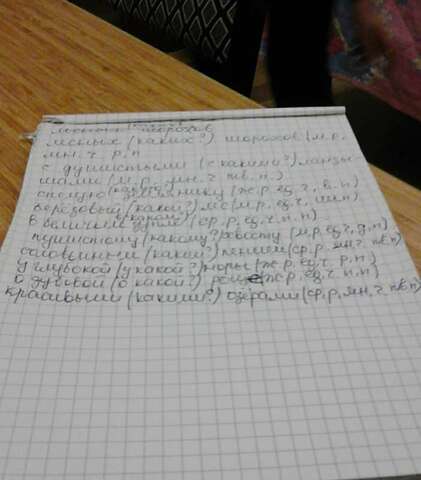 лесных шорохов
лесных (каких?) шорохов (м.р.
мн.ч. р.п
с душистыми (с какими?) ланды-
шами (м.р., мн.ч. тв.п.)
спелую (какую?) землянику (ж.р, ед.ч, в.п)
берёзовый (какой?) лес (м.р, ед.ч, им.п)
в (каком?) дупле (ср.р, ед.ч, п.п.)
пушистому (какому?) хвосту (м.р, ед.ч, д.п)
соловьиным (каким?) пением (ср.р, тв.п)
у глубокой (у какой?) норы (ж.р, ед.ч, р.п)
о дубовой (о какой?) роще (ж.р, ед.ч, п.п)
красивыми (какими?) озёрами (ср.р, мн.ч тв.п)